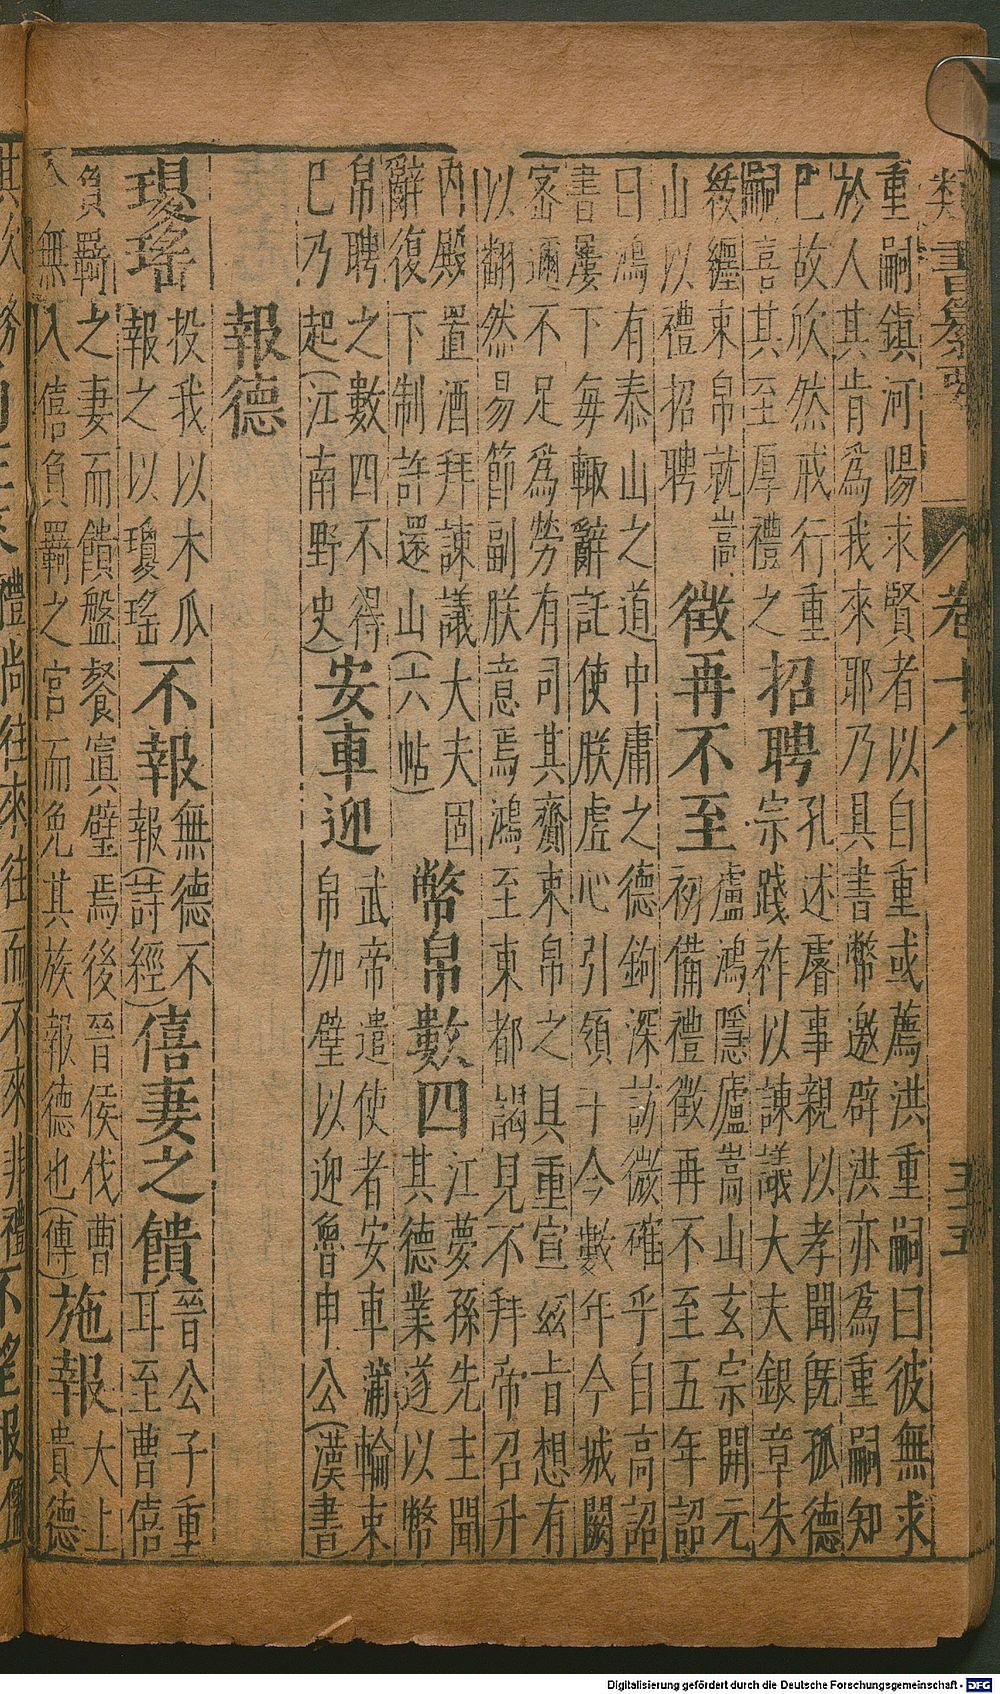 類書纂要 卷十八 三五
重嗣鎮河陽求賢者以自重或薦洪重嗣曰彼無求
於人其肯為我來耶乃具書幣邀辟洪亦為重嗣知
已故欣然戒行重
嗣喜其至厚禮之
招聘
孔述睿事親以孝聞旣孤德
宗踐祚以諫議大夫銀章朱
紱纁束帛就嵩
山以禮招聘
徵再不至
盧鴻隱廬嵩山玄宗開元
初備禮徵再不至五年詔
曰鴻有泰山之道中庸之德鉤深訪微確乎自高詔
書屢下每輒辭託使朕虛心引領于今數年今城闕
密邇不足為勞有司其齎束帛之具重宣玆旨想有
以翻然易節副朕意焉鴻至東都謁見不拜帝召升
內殿置酒拜諫議大夫固
辭復下制許還山(六帖)
幣帛數四
江夢孫先主聞
其德業遂以幣
帛聘之數四不得
已乃起(江南野史)
安車迎
武帝遣使者安車蒲輪束
帛加璧以迎魯申公(漢書)
報德
瓊瑤
投我以木瓜
報之以瓊瑤
不報
無德不
報(詩經)
僖妻之饋
晉公子重
耳至曹僖
負羈之妻而饋盤餐寘璧焉後晉侯伐曹
令無入僖負羈之宮而免其族報德也(傳)
施報
大上
貴德
其次務
禮尚往來往而不來非禮
不望報
Digitalisierung gefördert durch die Deutsche Forschungsgemeinschaft - DFG